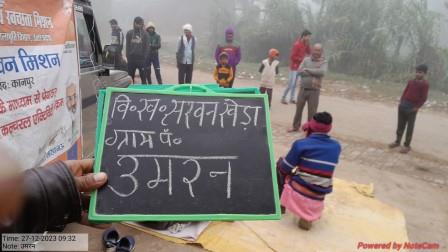 स्वच्छता मिशन
मिशन
कानपुर
के माध्यम से
वि॰ख॰ सरवनखेड़ा
ग्राम पं॰
उमरन
Time: 27-12-2023 09:32
Note: उमरन
Powered by NoteCam